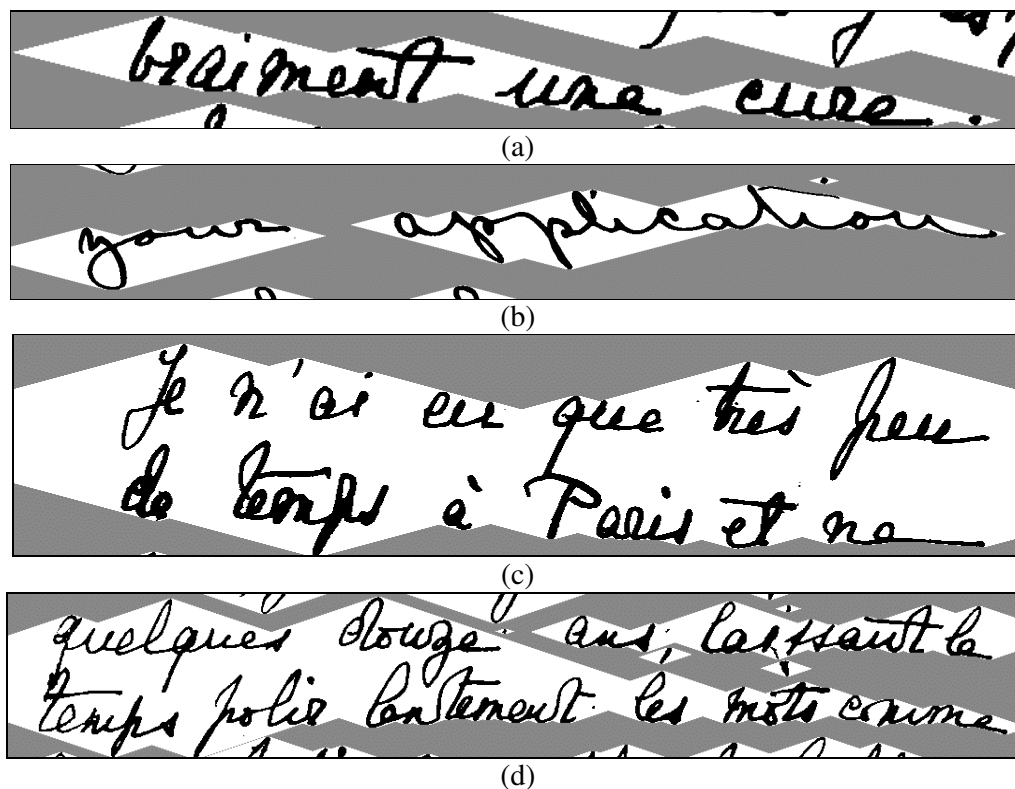 vraiment une cure.
(a)
your application
(b)
Je n'ai eu que très peu
de temps à Paris et ne
(c)
quelques douze ans, laissant le
temps polir lentement les mots comme
(d)